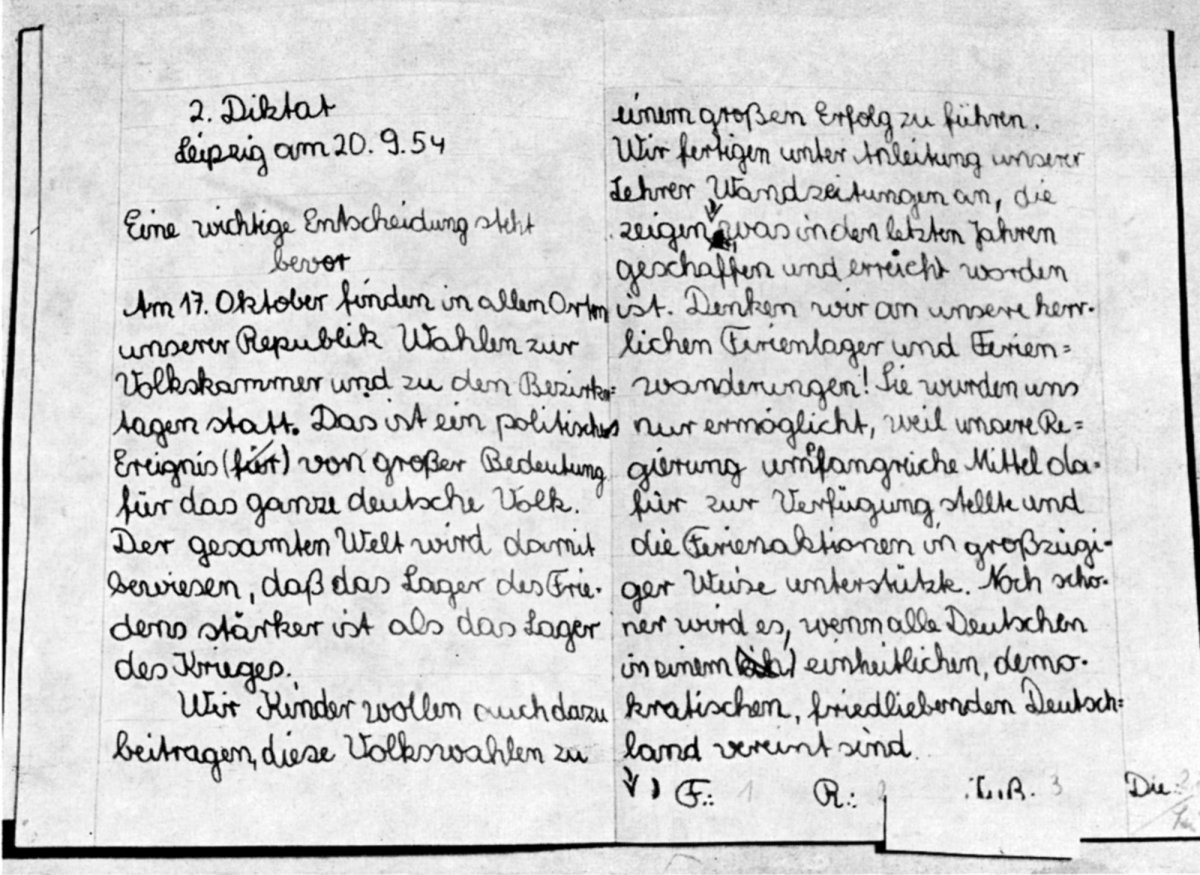 2. Diktat
Leipzig am 20. 9. 54
Eine wichtige Entscheidung steht
bevor
Am 17. Oktober finden in allen Orten
unserer Republik Wahlen zur
Volkskammer und zu den Bezirks=
tagen statt. Das ist ein politisches
Ereignis (für) von großer Bedeutung
für das ganze deutsche Volk.
Der gesamten Welt wird damit
bewiesen, daß das Lager des Frie-
dens stärker ist als das Lager
des Krieges.
Wir Kinder wollen auch dazu
beitragen, diese Volkswahlen zu
einem großen Erfolg zu führen.
Wir fertigen unter Anleitung unserer
Lehrer Wandzeitungen an, die
zeigen, was in den letzten Jahren
geschaffen und erreicht worden
ist. Denken wir an unsere herr-
lichen Ferienlager und Ferien=
wanderungen! Sie wurden uns
nur ermöglicht, weil unsere Re=
gierung umfangreiche Mittel da-
für zur Verfügung stellte und
die Ferienaktionen in großzügi-
ger Weise unterstützte. Noch schö-
ner wird es, wenn alle Deutschen
in einem einheitlichen, demo-
kratischen, friedliebenden Deutsch=
land vereint sind.
F.: 1 R.: L.R. 3 Di.: